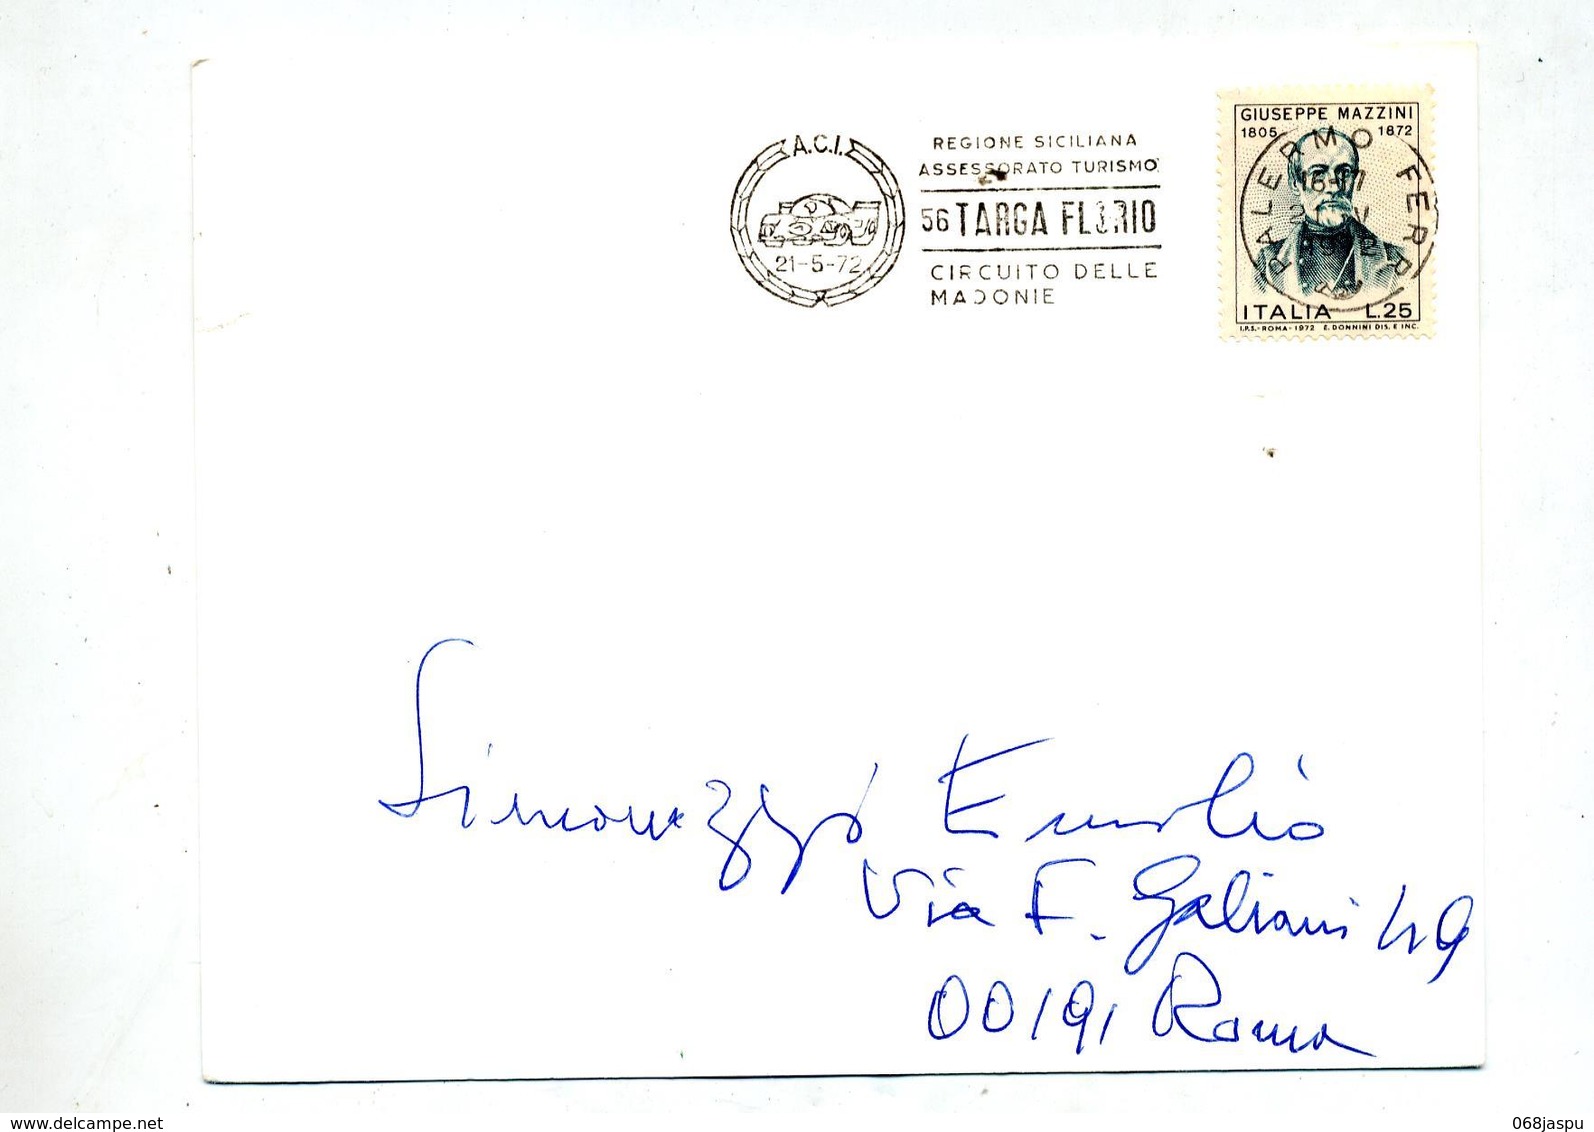 A.C.I.
21-5-72
REGIONE SICILIANA
ASSESSORATO TURISMO
56 TARGA FLORIO
CIRCUITO DELLE
MADONIE
GIUSEPPE MAZZINI
1805 1872
PALERMO FERR
16-17
21 V
1972
ITALIA L.25
I.P.S.-ROMA-1972 E. DONNINI DIS. E INC.
Simonazzi Emilio
Via F. Galiani 49
00191 Roma
www.delcampe.net
068jaspu